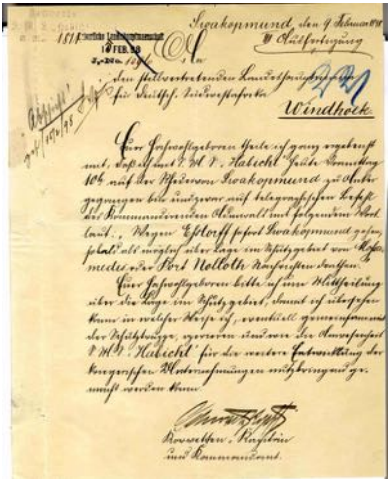 Swakopmund, den 9. Februar 1898
II Ausfertigung
An
Kaiserliche Landeshauptmannschaft
10 FEB. 98
J.-No.
den stellvertretenden Landeshauptmann
für Deutsch-Südwestafrika
Windhoek.
Euer Hochwohlgeboren theile ich ganz ergebenst
mit, daß ich mit S.M.S. "Habicht" heute Vormittag
10h auf der Rhede von Swakopmund zu Anker
gegangen bin und zwar auf telegraphischen Befehl
des Kommandirenden Admirals mit folgendem Wort
laut: "Wegen Estorff sofort Swakopmund gehen,
sobald als möglich über Lage im Schutzgebiet von Mossa
medes oder Port Nolloth Nachrichten drahten."
Euer Hochwohlgeboren bitte ich um Mittheilung
über die Lage im Schutzgebiet, damit ich übersehen
kann in welcher Weise ich, eventuell gemeinsam mit
der Schutztruppe, operieren und wie die Anwesenheit
S.M.S. "Habicht" für die weitere Entwicklung der
kriegerischen Unternehmungen nutzbringend ge-
macht werden kann.
Korvetten-Kapitän
und Kommandant.